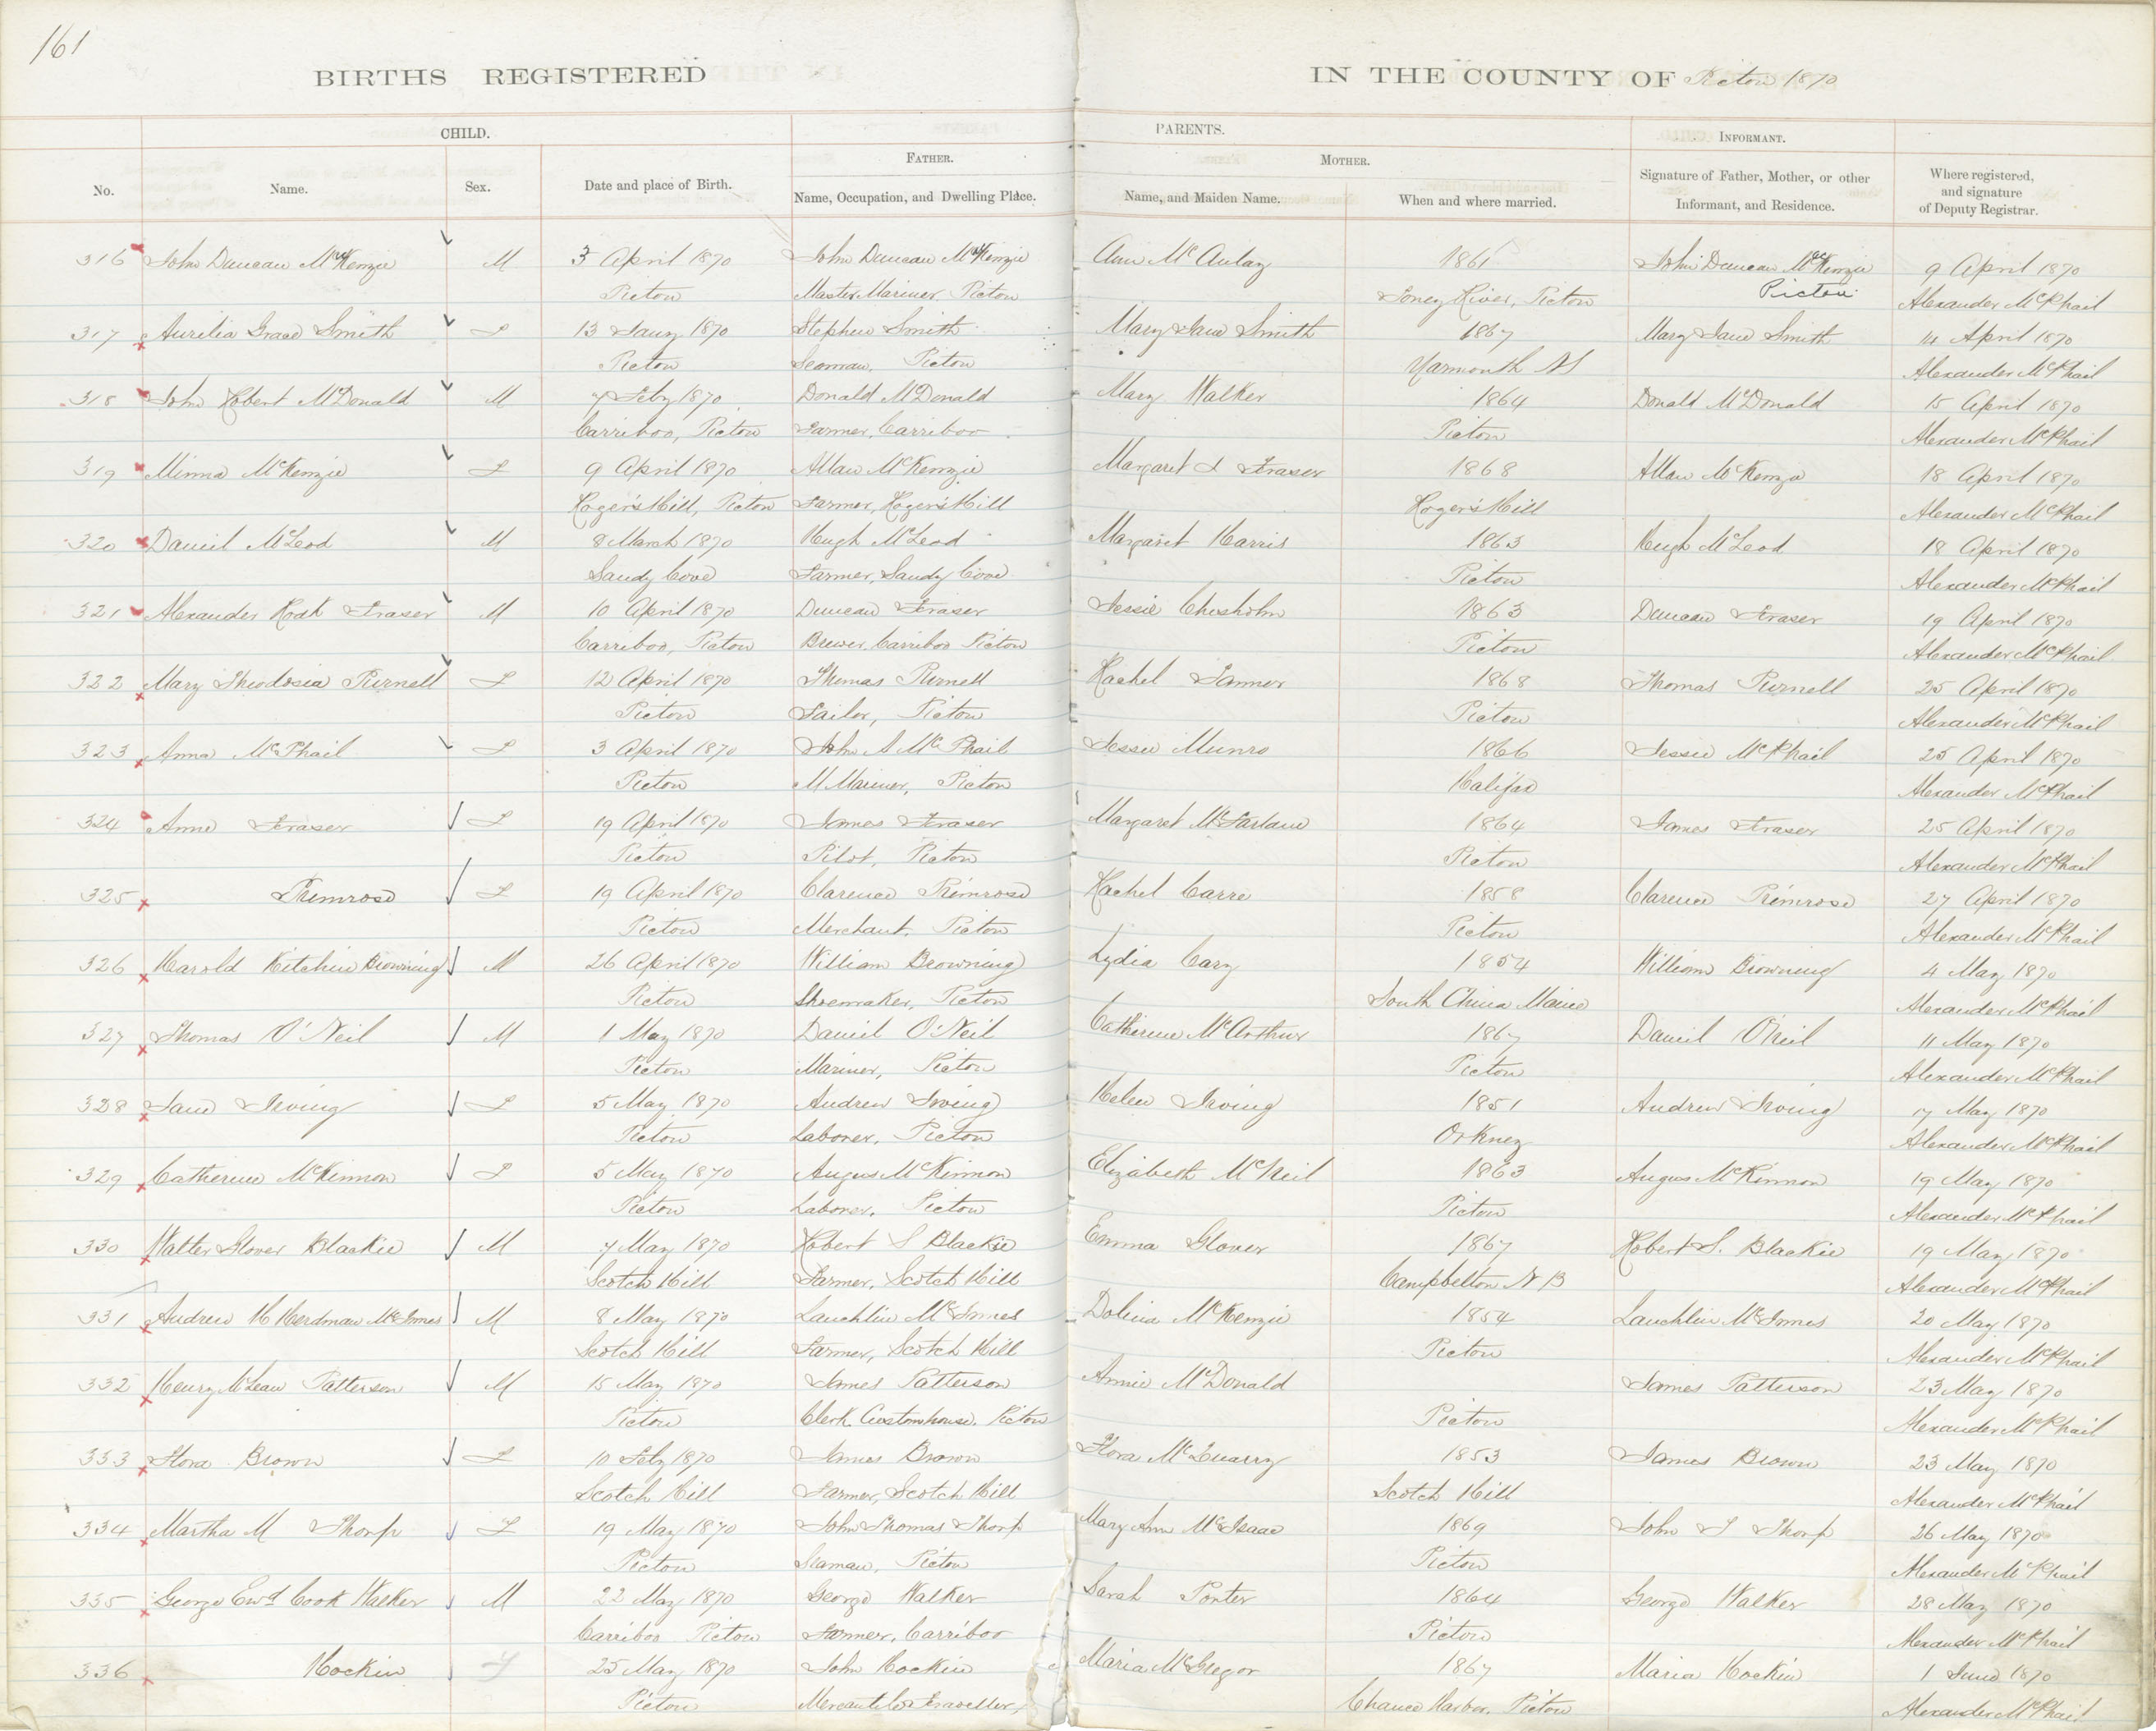 161
BIRTHS REGISTERED IN THE COUNTY OF Picton 1870
CHILD. PARENTS. INFORMANT.
FATHER. MOTHER.
No. Name. Sex. Date and place of Birth. Name, Occupation, and Dwelling Place. Name, and Maiden Name. When and where married. Signature of Father, Mother, or other Informant, and Residence. Where registered, and signature of Deputy Registrar.
316 John Duncan McKenzie M 3 April 1870 John Duncan McKenzie Ann McAulay 1861 John Duncan MacKenzie 9 April 1870
Picton Master Mariner Picton Toney River, Picton Pictou Alexander McPhail
317 Aurilia Grace Smith F 13 Jany 1870 Stephen Smith Mary Jane Smith 1867 Mary Jane Smith 14 April 1870
Picton Seaman, Picton Yarmouth NS Alexander McPhail
318 John Robert McDonald M 7 Feby 1870 Donald McDonald Mary Walker 1864 Donald McDonald 15 April 1870
Carriboo, Picton Farmer, Carriboo Picton Alexander McPhail
319 Minna McKenzie F 9 April 1870 Allan McKenzie Margaret & Fraser 1868 Allan McKenzie 18 April 1870
Roger's Hill, Picton Farmer, Roger's Hill Roger's Hill Alexander McPhail
320 Daniel McLeod M 8 March 1870 Hugh McLeod Margaret Harris 1863 Hugh McLeod 18 April 1870
Sandy Cove Farmer, Sandy Cove Picton Alexander McPhail
321 Alexander Fraser M 10 April 1870 Duncan Fraser Jessie Chisholm 1863 Duncan Fraser 19 April 1870
Carriboo, Picton Brewer, Carriboo Picton Picton Alexander McPhail
322 Mary Theodosia Purnell F 12 April 1870 Thomas Purnell Rachel Tanner 1868 Thomas Purnell 25 April 1870
Picton Sailor, Picton Picton Alexander McPhail
323 Anna McPhail F 3 April 1870 John S McPhail Jessie Munro 1866 Jessie McPhail 25 April 1870
Picton M Mariner, Picton Halifax Alexander McPhail
324 Anne Fraser F 19 April 1870 James Fraser Margaret McFarlane 1864 James Fraser 25 April 1870
Picton Pilot, Picton Picton Alexander McPhail
325 Primrose F 19 April 1870 Clarence Primrose Rachel Carre 1858 Clarence Primrose 27 April 1870
Picton Merchant, Picton Picton Alexander McPhail
326 Harold Kitchin Browning M 26 April 1870 William Browning Lydia Cary 1854 William Browning 4 May 1870
Picton Shoemaker, Picton South China Maine Alexander McPhail
327 Thomas O'Neil M 1 May 1870 Daniel O'Neil Catherine McArthur 1867 Daniel O'Neil 11 May 1870
Picton Mariner, Picton Picton Alexander McPhail
328 Jane Irving F 5 May 1870 Andrew Irving Helen Irving 1851 Andrew Irving 17 May 1870
Picton Laborer, Picton Orkney Alexander McPhail
329 Catherine McKinnon F 5 May 1870 Angus McKinnon Elizabeth McNeil 1863 Angus McKinnon 19 May 1870
Picton Laborer, Picton Picton Alexander McPhail
330 Walter Glover Blackie M 7 May 1870 Robert S Blackie Emma Glover 1867 Robert S. Blackie 19 May 1870
Scotch Hill Farmer, Scotch Hill Campbelton N B Alexander McPhail
331 Andrew H Herdman McInnes M 8 May 1870 Lauchlin McInnes Dolina McKenzie 1854 Lauchlin McInnes 20 May 1870
Scotch Hill Farmer, Scotch Hill Picton Alexander McPhail
332 Henry McLean Patterson M 15 May 1870 James Patterson Annie McDonald James Patterson 23 May 1870
Picton Clerk Customhouse, Picton Picton Alexander McPhail
333 Flora Brown F 10 Feby 1870 James Brown Flora McQuarry 1853 James Brown 23 May 1870
Scotch Hill Farmer, Scotch Hill Scotch Hill Alexander McPhail
334 Martha M Thorp F 19 May 1870 John Thomas Thorp Mary Ann McIsaac 1869 John T Thorp 26 May 1870
Picton Seaman, Picton Picton Alexander McPhail
335 George Ewd Cook Walker M 22 May 1870 George Walker Sarah Porter 1864 George Walker 28 May 1870
Carriboo Picton Farmer, Carriboo Picton Alexander McPhail
336 Hockin F 25 May 1870 John Hockin Maria McGregor 1867 Maria Hockin 1 June 1870
Picton Mercantile Traveller, Chance Harbor, Picton Alexander McPhail